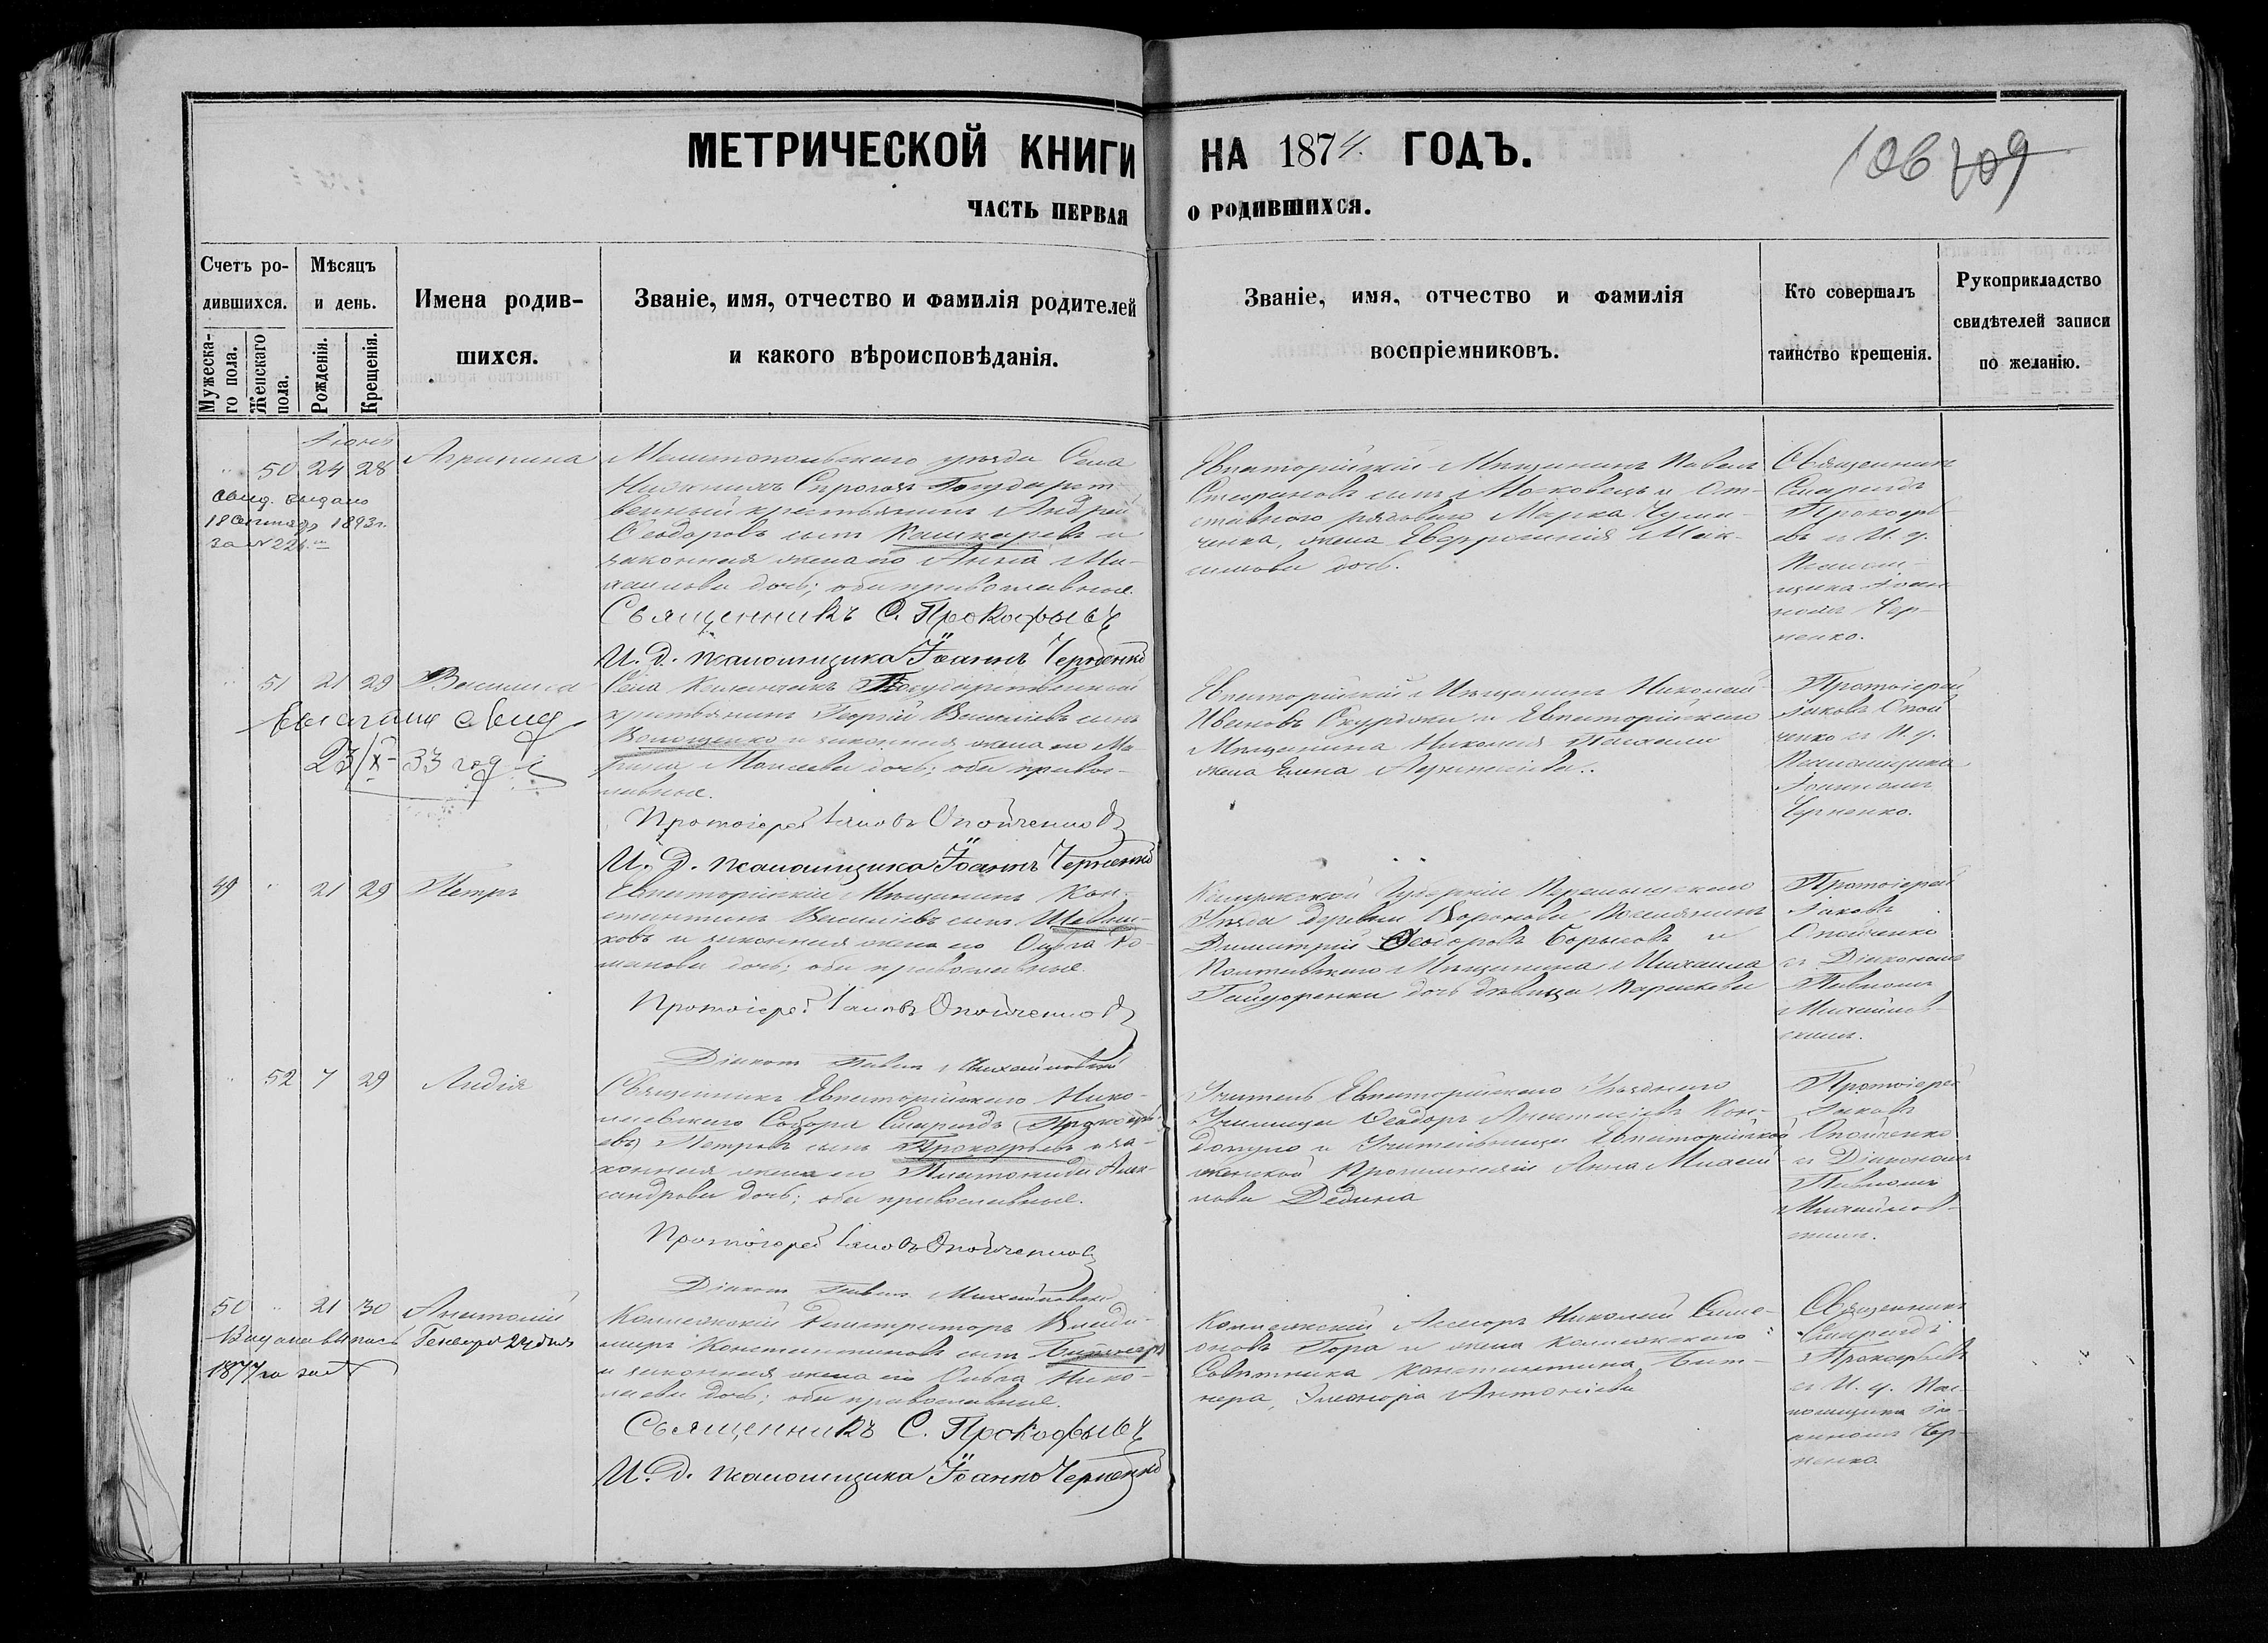 МЕТРИЧЕСКОЙ КНИГИ НА 1874. ГОДЪ.
106 709
ЧАСТЬ ПЕРВАЯ О РОДИВШИХСЯ.
Счетъ ро-
дившихся.
Мужеска-
го пола.
Женскаго
пола.
Мѣсяцъ
и день.
Рожденія.
Крещенія.
Имена родив-
шихся.
Званіе, имя, отчество и фамилія родителей
и какого вѣроисповѣданія.
Званіе, имя, отчество и фамилія
воспріемниковъ.
Кто совершалъ
таинство крещенія.
Рукоприкладство
свидѣтелей записи
по желанію.
50 24 28
Агрипина
Свид. выдано
18 Сентября 1893 г.
за № 226
Мелитопольскаго уѣзда Села
Нижнихъ Сирогозъ Государст-
венный крестьянинъ Андрей
Ѳеодоровъ сынъ Кашкаревъ и
законная жена его Анна Ми-
хаилова дочь; оба православные.
Священникъ С. Прокофьевъ
И. Д. псаломщика Іоаннъ Черненко
Евпаторійскій Мѣщанинъ Павелъ
сынъ Московецъ и От-
ставного рядового Марка Чума-
ченка, жена Евфросинія Мак-
симова дочь.
Священникъ
Смарагдъ
Прокофь-
евъ и И. д.
Псалом-
щика Іоан-
номъ Чер-
ненко.
51 21 29
Василиса
23/X 33 года
Села Каланчакъ Государственный
крестьянинъ Георгій Васильевъ сынъ
Волощенко и законная жена его Ма-
рина Моисеева дочь; оба право-
славные.
Протоіерей Іаковъ Опойченковъ
И. Д. псаломщика Іоаннъ Черненко
Евпаторійскій Мѣщанинъ Николай
Ивановъ и Евпаторійскаго
Мѣщанина Николая
жена Елена
Протоіерей
Іаковъ Опой-
ченко съ И. д.
Псаломщика
Іоанномъ
Черненко.
49 21 29
Петръ
Евпаторійскій Мѣщанинъ Кон-
стантинъ Васильевъ сынъ
и законная жена его Ро-
манова дочь; оба православные.
Протоіерей Іаковъ Опойченковъ
Діаконъ Павелъ Михайловскій
Калужской Губерніи Перемышльскаго
Уѣзда деревни Вороновой Поселянинъ
Димитрій Ѳеодоровъ Борисовъ и
Полтавскаго Мѣщанина Михаила
Гайдоренки дочь дѣвица Параскева
Протоіерей
Іаковъ
Опойченко
съ Діакономъ
Павломъ
Михайлов-
скимъ.
52 7 29
Лидія
Священникъ Евпаторійскаго Нико-
лаевскаго Собора Смарагдъ (Прокофь-
евъ) Петровъ сынъ Прокофьевъ и за-
конная жена его Платонида Алек-
сандрова дочь; оба православные.
Протоіерей Іаковъ Опойченковъ
Діаконъ Павелъ Михайловскій
Учитель Евпаторійскаго Уѣзднаго
Училища Ѳеодоръ Анастасіевъ Кон-
и Учительница Евпаторійской
женской Прогимназіи Анна Михай-
лова Дедина
Протоіерей
Іаковъ
Опойченко
съ Діакономъ
Павломъ
Михайлов-
скимъ.
50 21 30
Анатолій
Выдана выпись Генваря 24 дня
1877 за №
Коллежскій Регистраторъ Влади-
миръ Константиновъ сынъ Битнеръ
и законная жена его Ольга Нико-
лаева дочь; оба православные.
Священникъ С. Прокофьевъ
И. Д. псаломщика Іоаннъ Черненко
Коллежскій Ассесоръ Николай Симе-
оновъ Гора и жена Коллежскаго
Совѣтника Константина Бит-
нера, Элеонора Антоніева
Священникъ
Смарагдъ
Прокофьевъ
съ И. д. Пса-
ломщика Іо-
анномъ Чер-
ненко.